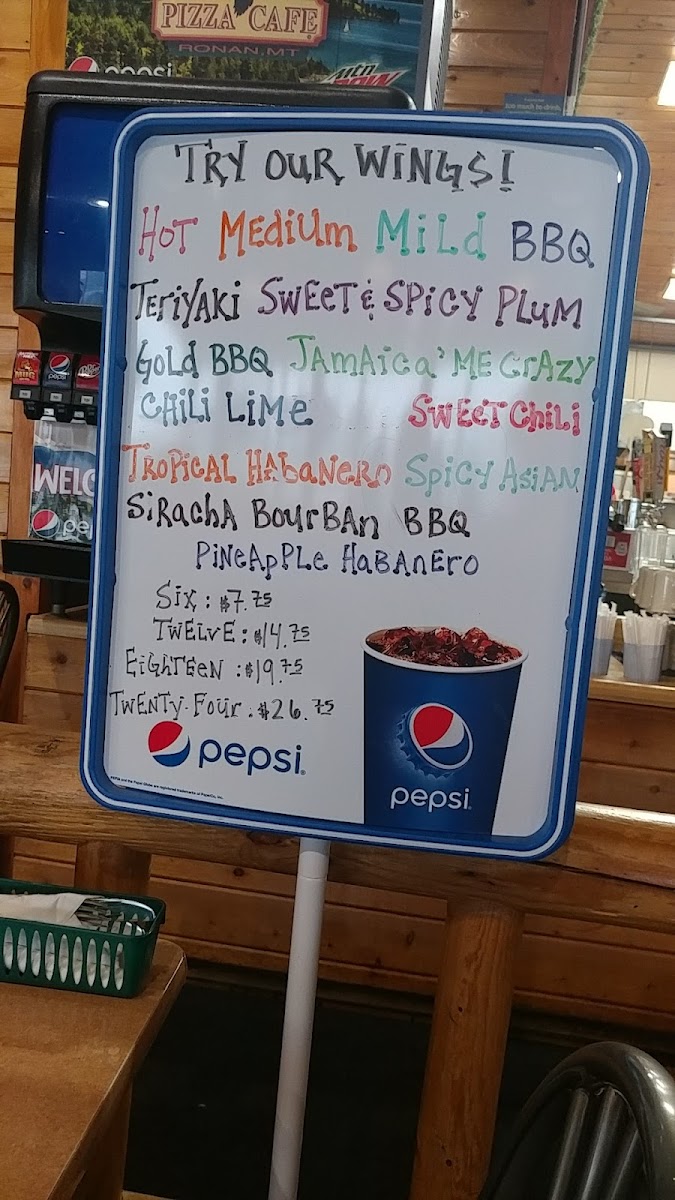 PIZZA CAFE
RONAN, MT
pepsi
Mtn
TRY OUR WINGS!
HOT MEdiUm MiLd BBQ
TERiYAKi SWEET & SPiCY PLUM
GOLd BBQ JAMAica' ME CrAZY
CHiLi LiME SWEET CHiLi
TROPiCAL HAbaNERO SpiCY ASiAN
SiRachA BourBAn BBQ
PiNEApPLe HaBANERO
Six: $7.75
TWELVE: $14.75
EiGHTEEN: $19.75
TWENTY-Four. $26.75
pepsi
pepsi
MUG
pepsi
WELC
pe